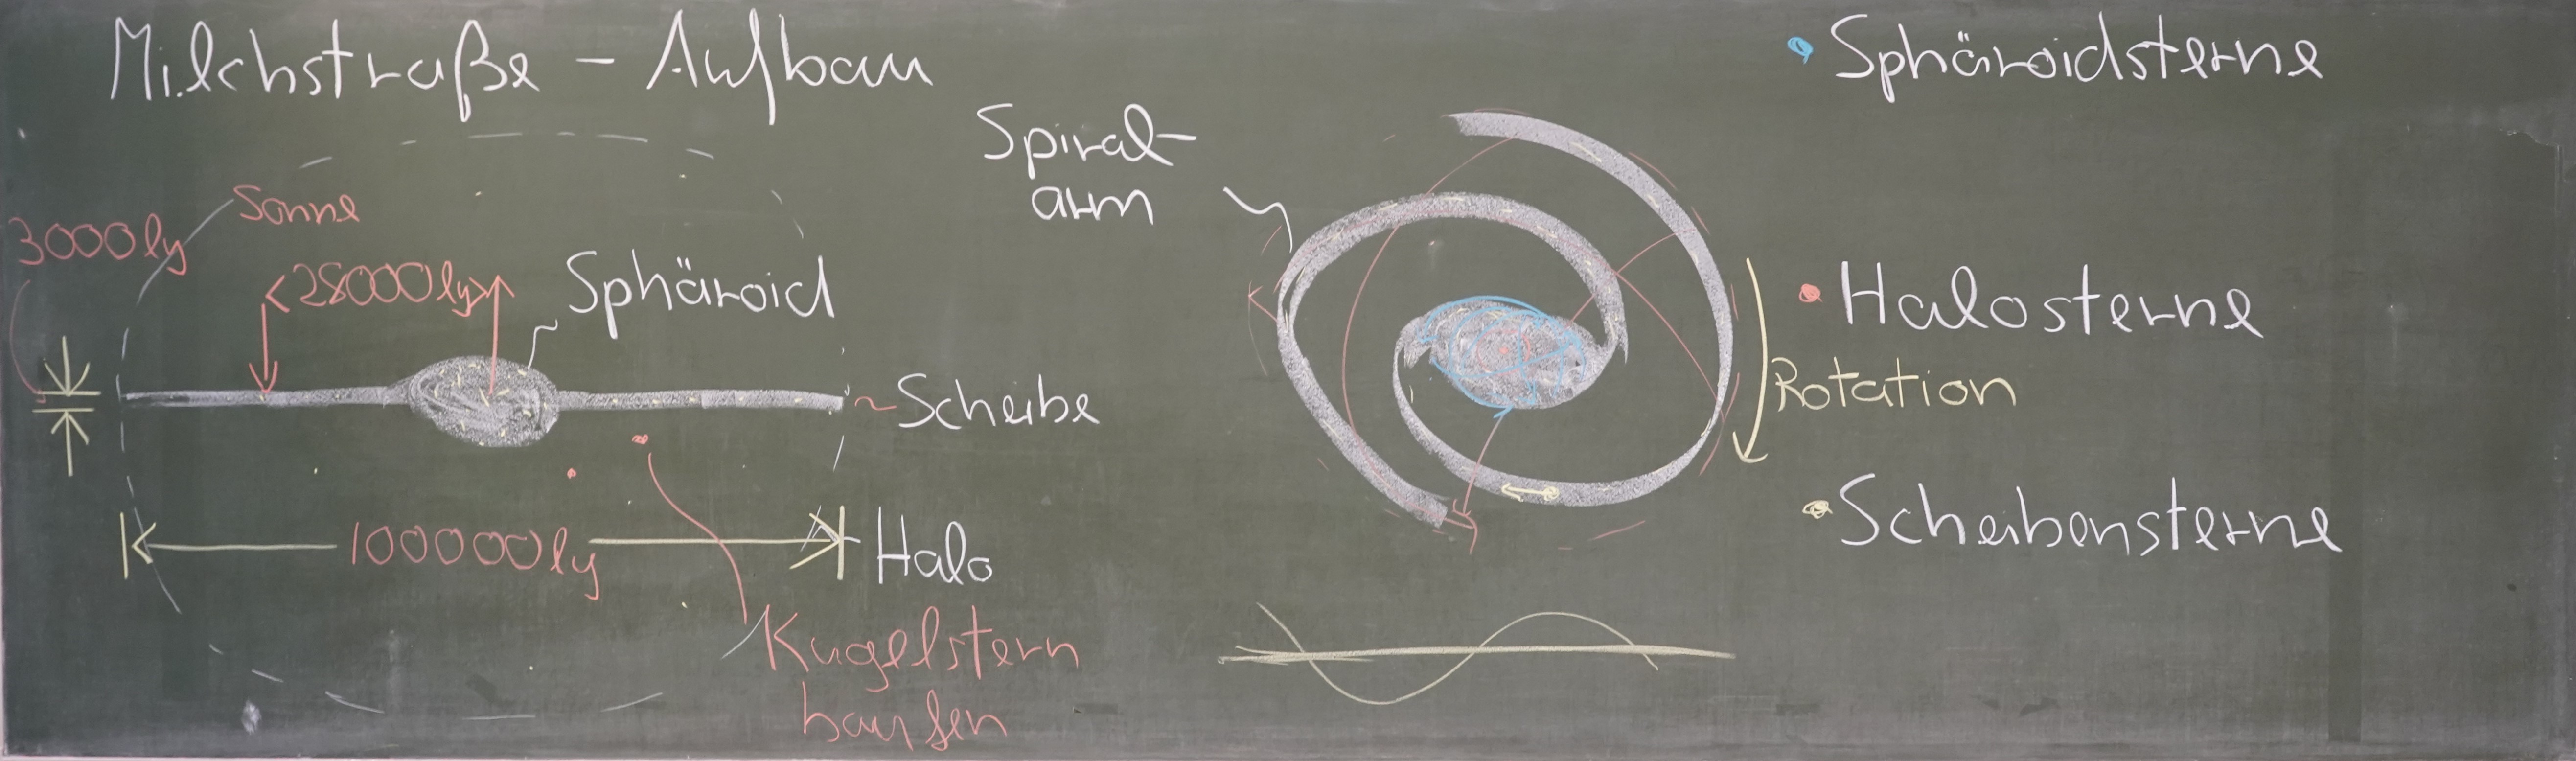 Milchstraße - Aufbau
Sonne
3000ly
28000ly
Sphäroid
Scheibe
100000ly
Halo
Kugelstern
haufen
Spiral-
arm
Rotation
Sphäroidsterne
Halosterne
Scheibensterne